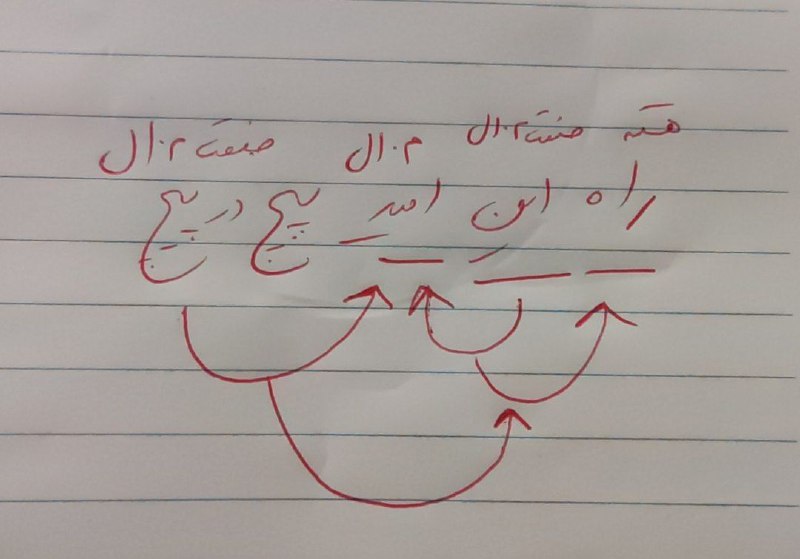 هسته صفت م.ال م.ال صفت م.ال
راه این امید پیچ در پیچ